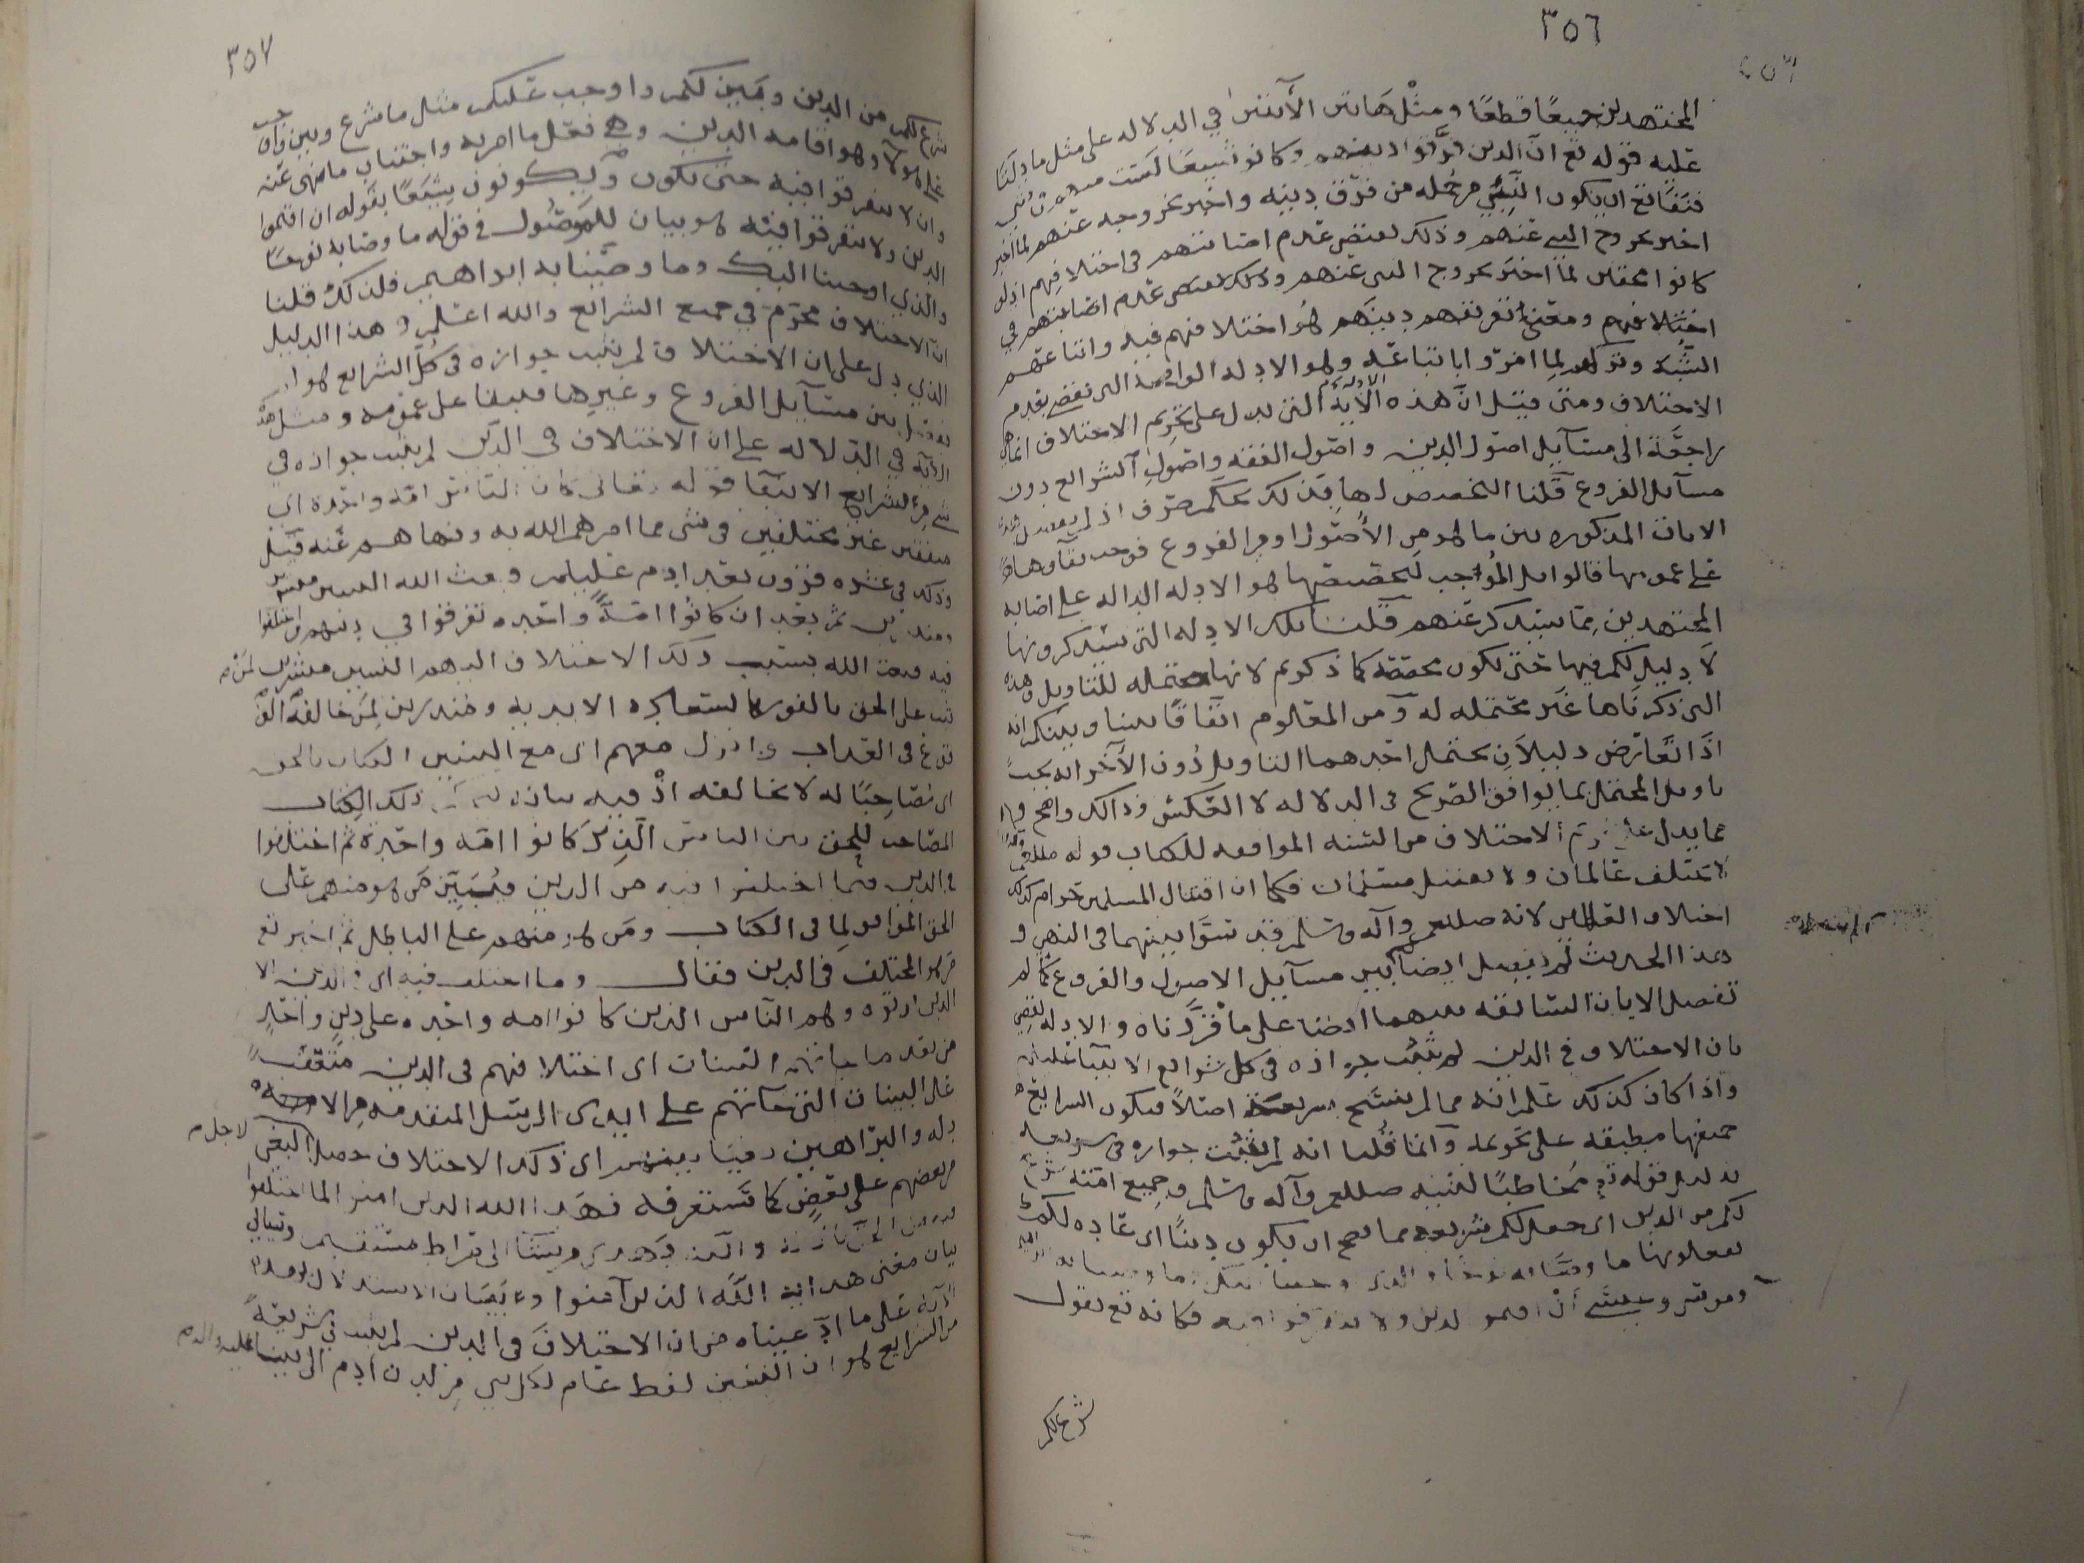 ٣٥٦
المجتهدين جميعًا قطعًا ومثْل هَاتين الأيتين في الدلاله على مثل ما دلتا
عليه قوله تع ان الدين فرّقوا دينهم وكانوا شيعًا لست منهم في شي
فنفَا تع ان يكون النبي من جمله من فرّق دينه واخبر بخروجه عنهم لما اخبر
اخبر بخروج النبي عنهم وذلك يقتضي عدم اصابتهم في اختلافهم اذ لو
كانوا محقين لمّا اخبر بخروج النبي عنهم وذلك يقتضي عدم اصابتهم في
اختِلافهم ومعنى تفريقهم دينَهم هُو اختلافهم فيه واتباعهم
الشبه وتركهم لِما امروا باتباعه وهو الادله الواضحه التي تقضي بعدم
الاختلاف ومتى قيل انّ هذه الأدلة التي تدل على تحريم الاختلاف انما هي
راجعَة الى مسَآيل اصول الدين واصول الفقه واصُول الشرائع دون
مسآيل الفروع قلنا التخصيص لها بذلك تحكم صرف اذ لم يفصل هذه
الايات المذكوره بين ما هو من الأُصُول او من الفروع فوجب بقآوها
على عمومها قالوا بل المُوجب لتخصيصها هو الادله الداله على اصابه
المجتهدين مما سيذكر عنهم قلنا تلك الادله التي ستذكرونها
لَا دليل لكم فيها حتى تكون مخصصه كما ذكرتم لانها محتمله للتاويل وهذه
التي ذكرنَاها غَير محتمله له ومن المعَلوم اتفَاقًا بيننا وبينكم انه
اذَا تعَارض دليلَانِ يحتمل احدهما التاويل دُون الآخر انه يجب
تاويل المحتمل بما يوافق الصريح في الدلاله لا العَكس وذالك واضح
مما يدل على الاختلاف من السّنه الموافقه للكتاب قوله صللعم
لا يختلف عَالمان ولا يقتتل مسلمان فكما ان اقتتال المسلمين حرام كذلك
اختلاف العَالمين لانه صللعم وآله وسَلم قد سَوَّا بينهما في النهي و
هذا الحديث لم يفصل ايضاً بين مسآيل الاصول والفروع كما لم
تفصل الايات السَالفه بينهما ايضا على ما قرَّرناه والادله تقضي
بان الاختلاف في الدين لم يَثبُت جوازه في كل شرائع الانبيآ
واذا كان كذلك عَلم انه مما لم ينسَخ بشريعَة اصلاً فتكون الشرايع
جميعها مطبقه على تحريمه وانما قُلنا انه لم يثبت جوازه في شريعه
بدليل قوله تع مُخَاطبًا لنبيه صللعم وآله وسَلم وجميع امته شرع
لكم من الدين اي جعل لكم شريعه مما يصح ان يكون دينًا اي عَاده لكم
تفعلونها ما وصَّا به نوحا والذي اوحينا اليك وما وصينا به ابراهيم
وموسى وعيسَى أن اقيموا الدين ولا تتفرقوا فيه فكانه تع يقول
شرع لكم
٣٥٧
شرع لكم من الدين وبَيّن لكم واوجب عليكم مثل ما شرع وبين واوجب
على هولآء وهو اقامه الدين وهي فعَل ما امر به واجتناب ما نهى عنه
وان لا تتفرقوا فيه حتى تكون وتكونون شِيَعًا بقوله ان اقيموا
الدين ولا تتفرقوا فيه هو بيان للموَصُول في قوله ما وصّا به نوحًا
والذي اوحينا اليك وما وصّينا به ابراهيم فلذلك قلنا
انّ الاختلاف محرّم في جميع الشرائع والله اعَلم وهذا الدليل
الذي دل على ان الاختلاف لم يثبت جوازه في كُلّ الشرائع هو
يفصل بين مسَآيل الفروع وغيرِها فيبقا على عمومه ومثل هذه
الايه في الدّلاله على ان الاختلاف في الدين لم يثبت جوازه في
شيء من الشرايع الانبيَآ قوله تعالى كان النّاس امة واحدة اي
متفقين غير مختلفينَ في شي مما امرهم الله به ونهاهم عَنه قيل
وذلك في عشره قرون بعد ادم عليلم وبعث الله النبيين مبشرين
ومنذرين ثم بعد ان كانُوا امّةً واحده تفرقوا في دينهم واختلفوا
فيه فبعث الله بسبب ذلك الاختلاف اليهم النبيين مبشرين لمن
ثبت على الحق بالفوز بالسّعاده الابديه ومنذرين لِمَن خالفه الحق
في العذاب وانزل معهم اي مع النبيين الكتاب بالحق
اي مُصَاحبًا له لا يخالفه اذْ فيه بيانه ليحكم ذلك الكتاب
المصاحب للحق بين الناس الّذين كانوا امّه واحدة ثم اختلفوا
في الدين فيما اختلفوا فيه من الدين فيُبيّن مَن هو منهم على
الحق الموافق لِما في الكتاب ومَن هو منهم على الباطل ثم اخبر تع
من هو المختلف في الدين فقال وما اختلف فيه اي في الدين الا
الذين اوتوه وهم النّاس الذين كانوا امه واحده على دينٍ واحدٍ
من بعد ما جاءتهم البينات اي اختلافهم في الدين
على البينات التي جآتهم على ايدي الرسل المتقدمه من الادله
دله والبرَاهين بغيَا بينهم اي ذلك الاختلاف حصل لاجل البغَي
من بعضهم على بعَضٍ كما سَتعرفه فهَدا الله الذين امنوا لما اختلفوا
فيه من الحق باذنه والله يَهدي من يشَآ الى صراط مستقيم وسياتي
بيان معَنى هدايه اللّه الذين آمنوا وبَيَان الاستدلال بهذه
الآيه على ما ادّعيناه من ان الاختلَافَ في الدين لم يثبت في شريعَة
من الشرايع هو ان النبيين لفظ عَام لكل نبي مِن لدن آدم الى نبينا عليه واله